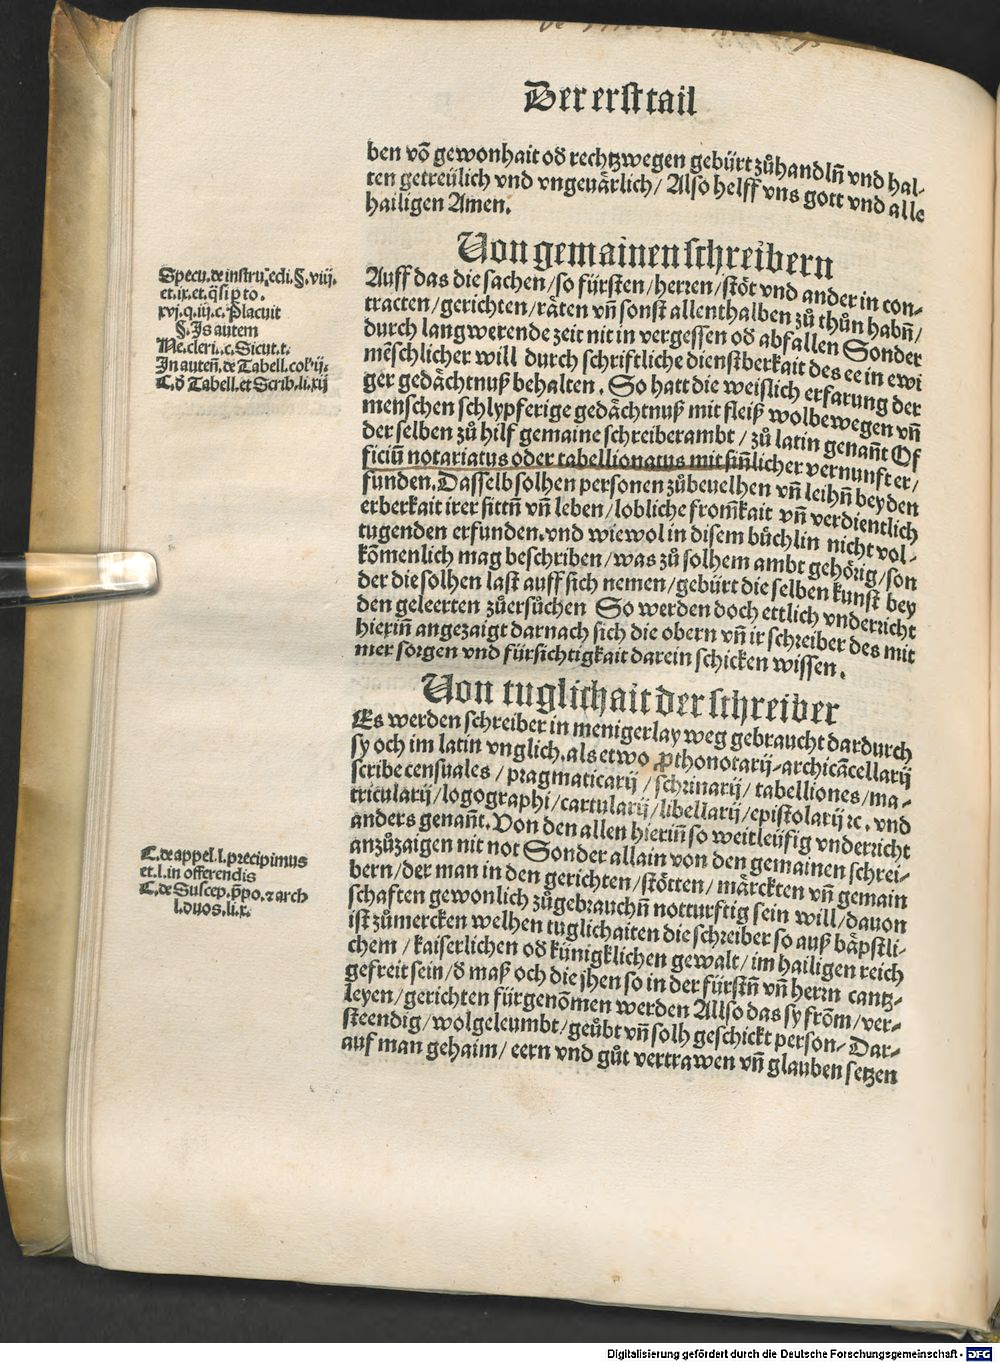 Der erst tail
ben võ gewonhait od rechtzwegen gebürt zůhandlñ vnd hal-
ten getreülich vnd vngeuärlich/ Also helff vns gott vnd alle
hailigen Amen.
Von gemainen schreibern
Auff das die sachen/so fürsten/herren/stöt vnd ander in con-
tracten/gerichten/räten vñ sonst allenthalben zů thůn habñ/
durch langwerende zeit nit in vergessen od abfallen Sonder
mẽschlicher will durch schriftliche dienstberkait des ee in ewi
ger gedächtnuß behalten. So hatt die weislich erfarung der
menschen schlypferige gedächtnuß mit fleiß wolbewegen vñ
der selben zů hilf gemaine schreiberambt/ zů latin genañt Of
ficiũ notariatus oder tabellionatus mit siñlicher vernunft er/
funden. Dasselb solhen personen zůbeuelhen vñ leihñ bey den
erberkait irer sittñ vñ leben/lobliche from̃kait vñ verdientlich
tugenden erfunden.vnd wiewol in disem büchlin nicht vol-
kõmenlich mag beschriben/was zů solhem ambt gehörig/son
der die solhen last auff sich nemen/gebürt die selben kunst bey
den geleerten zůersůchen So werden doch ettlich vnderricht
hieriñ angezaigt darnach sich die obern vñ ir schreiber des mit
mer sorgen vnd fürsichtigkait darein schicken wissen.
Specu. de instru. edi. §. viij.
et. ix. et. q̃si p to.
xvj. q. iij. c. Placuit
§. Is autem
Ne. cleri. c. Sicut. t.
In auteñ. de Tabell. col. ij.
C. d Tabell. et Scrib. li. xij
Von tuglichait der schreiber
Es werden schreiber in menigerlay weg gebraucht dardurch
sy och im latin vnglich.als etwo p̱thonotarij-archicãcellarij
scribe censuales/pragmaticarij/schrinarij/tabelliones/ma-
tricularij/logographi/cartularij/libellarij/epistolarij ꝛc. vnd
anders genañt. Von den allen hieriñ so weitleüfig vnderricht
anzůzaigen nit not Sonder allain von den gemainen schrei-
bern/der man in den gerichten/stötten/märckten vñ gemain
schaften gewonlich zůgebrauchñ notturftig sein will/dauon
ist zůmercken welhen tuglichaiten die schreiber so auß bäpstli-
chem/kaiserlichen od künigklichen gewalt/im hailigen reich
gefreit sein/d maß och die jhen so in der fürstñ vñ herrn cantz-
leyen/gerichten fürgenõmen werden Allso das sy from̃/ver-
steendig/wolgeleumbt/geůbt vñ solh geschickt person- Dar-
auf man gehaim/eern vnd gůt vertrawen vñ glauben setzen
C. de appel. l. precipimus
et. l. in offerendis
C. de Suscep. p̃po. ⁊ arch
l. duos. li. x.
Digitalisierung gefördert durch die Deutsche Forschungsgemeinschaft - DFG